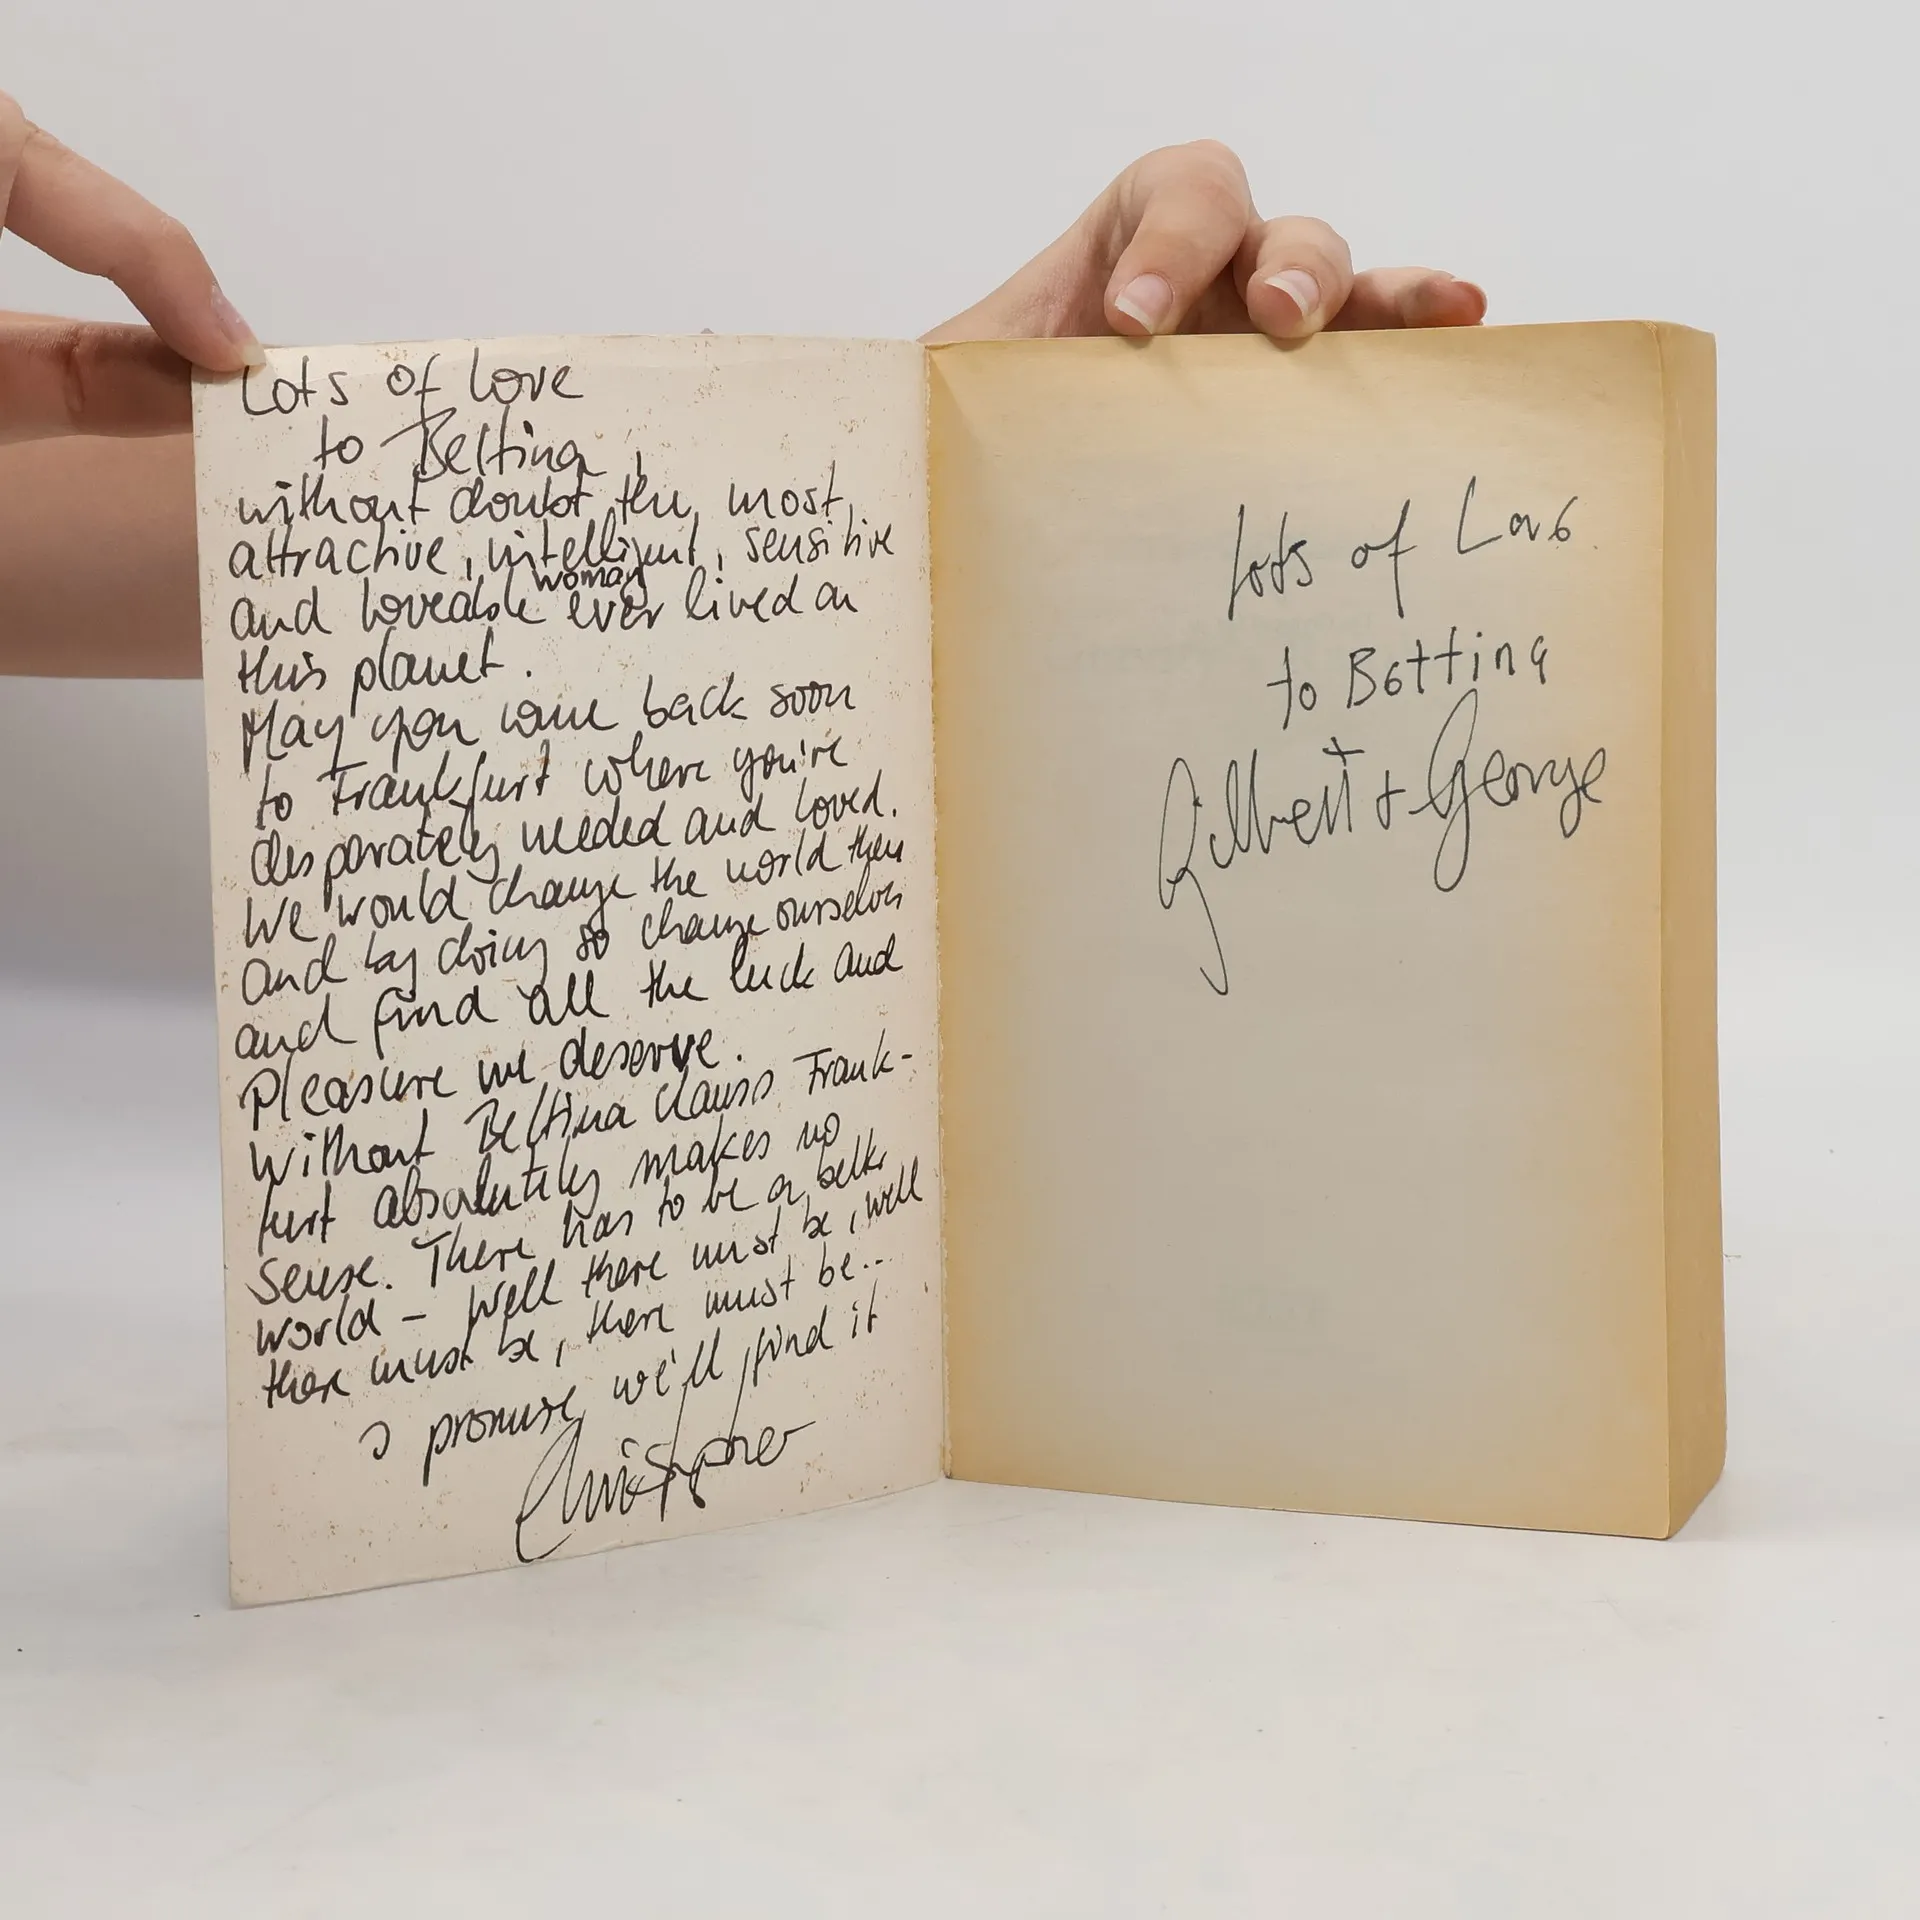 Lots of love
to Bettina,
without doubt the most
attractive, intelligent, sensitive
woman
and loveable ever lived on
this planet.
May you come back soon
to Frankfurt where you're
desparately needed and loved.
We would change the world then
and by doing so change ourselves
and find all the luck and
Pleasure we deserve.
Without Bettina Clauss Frank-
furt absolutely makes no
Sense. There has to be a better
world – Well there must be, well
there must be, there must be..
I promise we'll find it
Christopher
Lots of Love
to Bettina
Gilbert + George